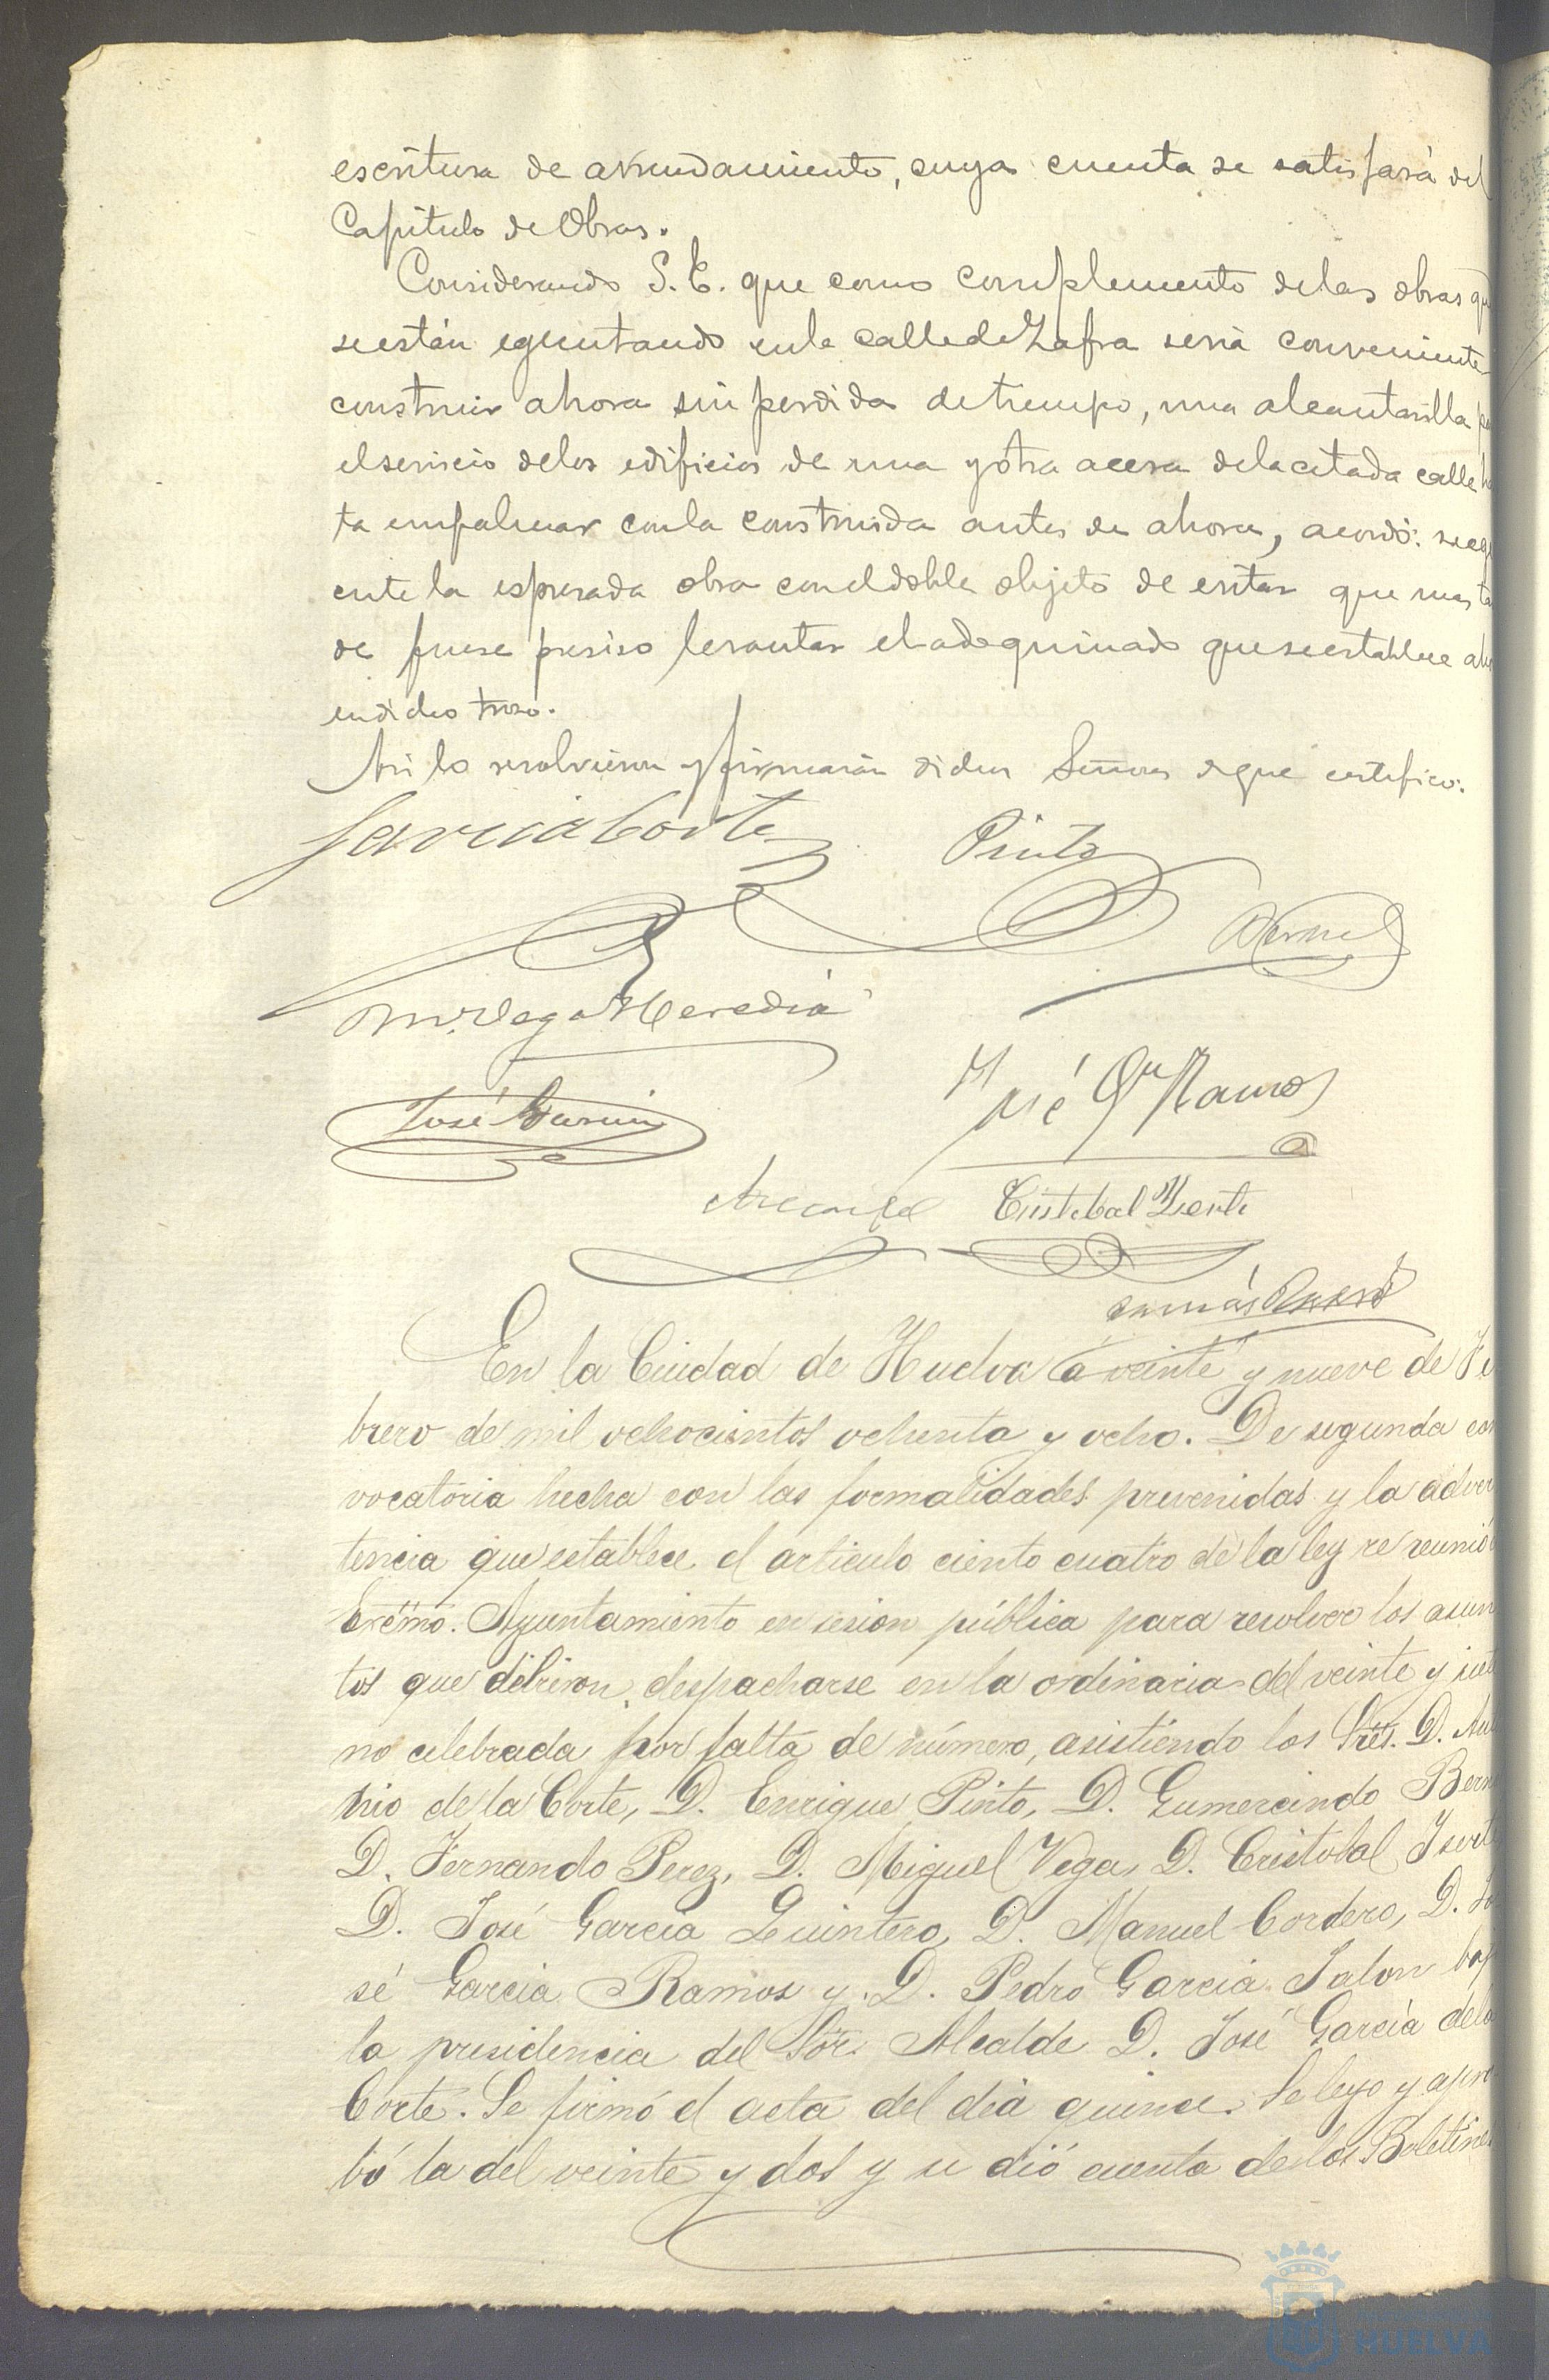 escritura de arrendamiento, cuya cuenta se satisfará del
Capítulo de Obras.
Considerando S. E. que como complemento delas obras q
seestán egecutando enla calle de Zafra seria conveniente
construir ahora sin perdida de tiempo, una alcantarilla p
elservicio delos edificios de una y otra acera dela citada calle h
ta empalmar conla construida antes de ahora, acordó: seeg
cute la espresada obra coneldoble objeto de evitar que mas ta
de fuese preciso levantar el adoquinado que se establece aho
endicho trozo.
Asi lo resolvieron y firmarán dichos Señores de que certifico.
Garcia Corte
Pinto
Bernal
M. Vega Heredia
José Garcia
José Ga Ramos
Cristobal
Tomás
En la Ciudad de Huelva á veinte y nueve de Fe
brero de mil ochocientos ochenta y ocho. De segunda con
vocatoria hecha con las formalidades prevenidas y la adver
tencia que establece el articulo ciento cuatro de la ley se reunió
Excmo. Ayuntamiento en sesion pública para resolver los asun
tos que debieron despacharse en la ordinaria del veinte y siet
no celebrada por falta de número, asistiendo los Sres. D. An
nio de la Corte, D. Enrique Pinto, D. Gumercindo Bern
D. Fernando Perez, D. Miguel Vega, D. Cristobal Ysert
D. José Garcia Quintero, D. Manuel Cordero, D. Jo
sé Garcia Ramos y D. Pedro Garcia Jalon baj
la presidencia del Sor. Alcalde D. José Garcia dela
Corte. Se firmó el acta del dia quince. Se leyo y apro
bó la del veinte y dos y se dió cuenta de los Boletines
HUELVA